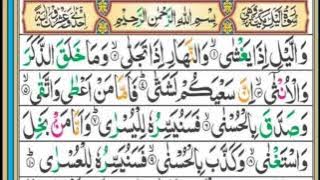 سُوْرَةُ الَّيْلِ مَكِّيَّةٌ وَّهِيَ بِسْمِ اللّٰهِ الرَّحْمٰنِ الرَّحِيْمِ اِحْدٰى وَّعِشْرُوْنَ اٰيَةً
وَالَّيْلِ اِذَا يَغْشٰى ۙ۱ وَالنَّهَارِ اِذَا تَجَلّٰى ۙ۲ وَمَا خَلَقَ الذَّكَرَ
وَالْاُنْثٰٓى ۙ۳ اِنَّ سَعْيَكُمْ لَشَتّٰى ؕ۴ فَاَمَّا مَنْ اَعْطٰى وَاتَّقٰى ۙ۵
وَصَدَّقَ بِالْحُسْنٰى ۙ۶ فَسَنُيَسِّرُهٗ لِلْيُسْرٰى ؕ۷ وَاَمَّا مَنْۢ بَخِلَ
وَاسْتَغْنٰى ۙ۸ وَكَذَّبَ بِالْحُسْنٰى ۙ۹ فَسَنُيَسِّرُهٗ لِلْعُسْرٰى ؕ۱۰